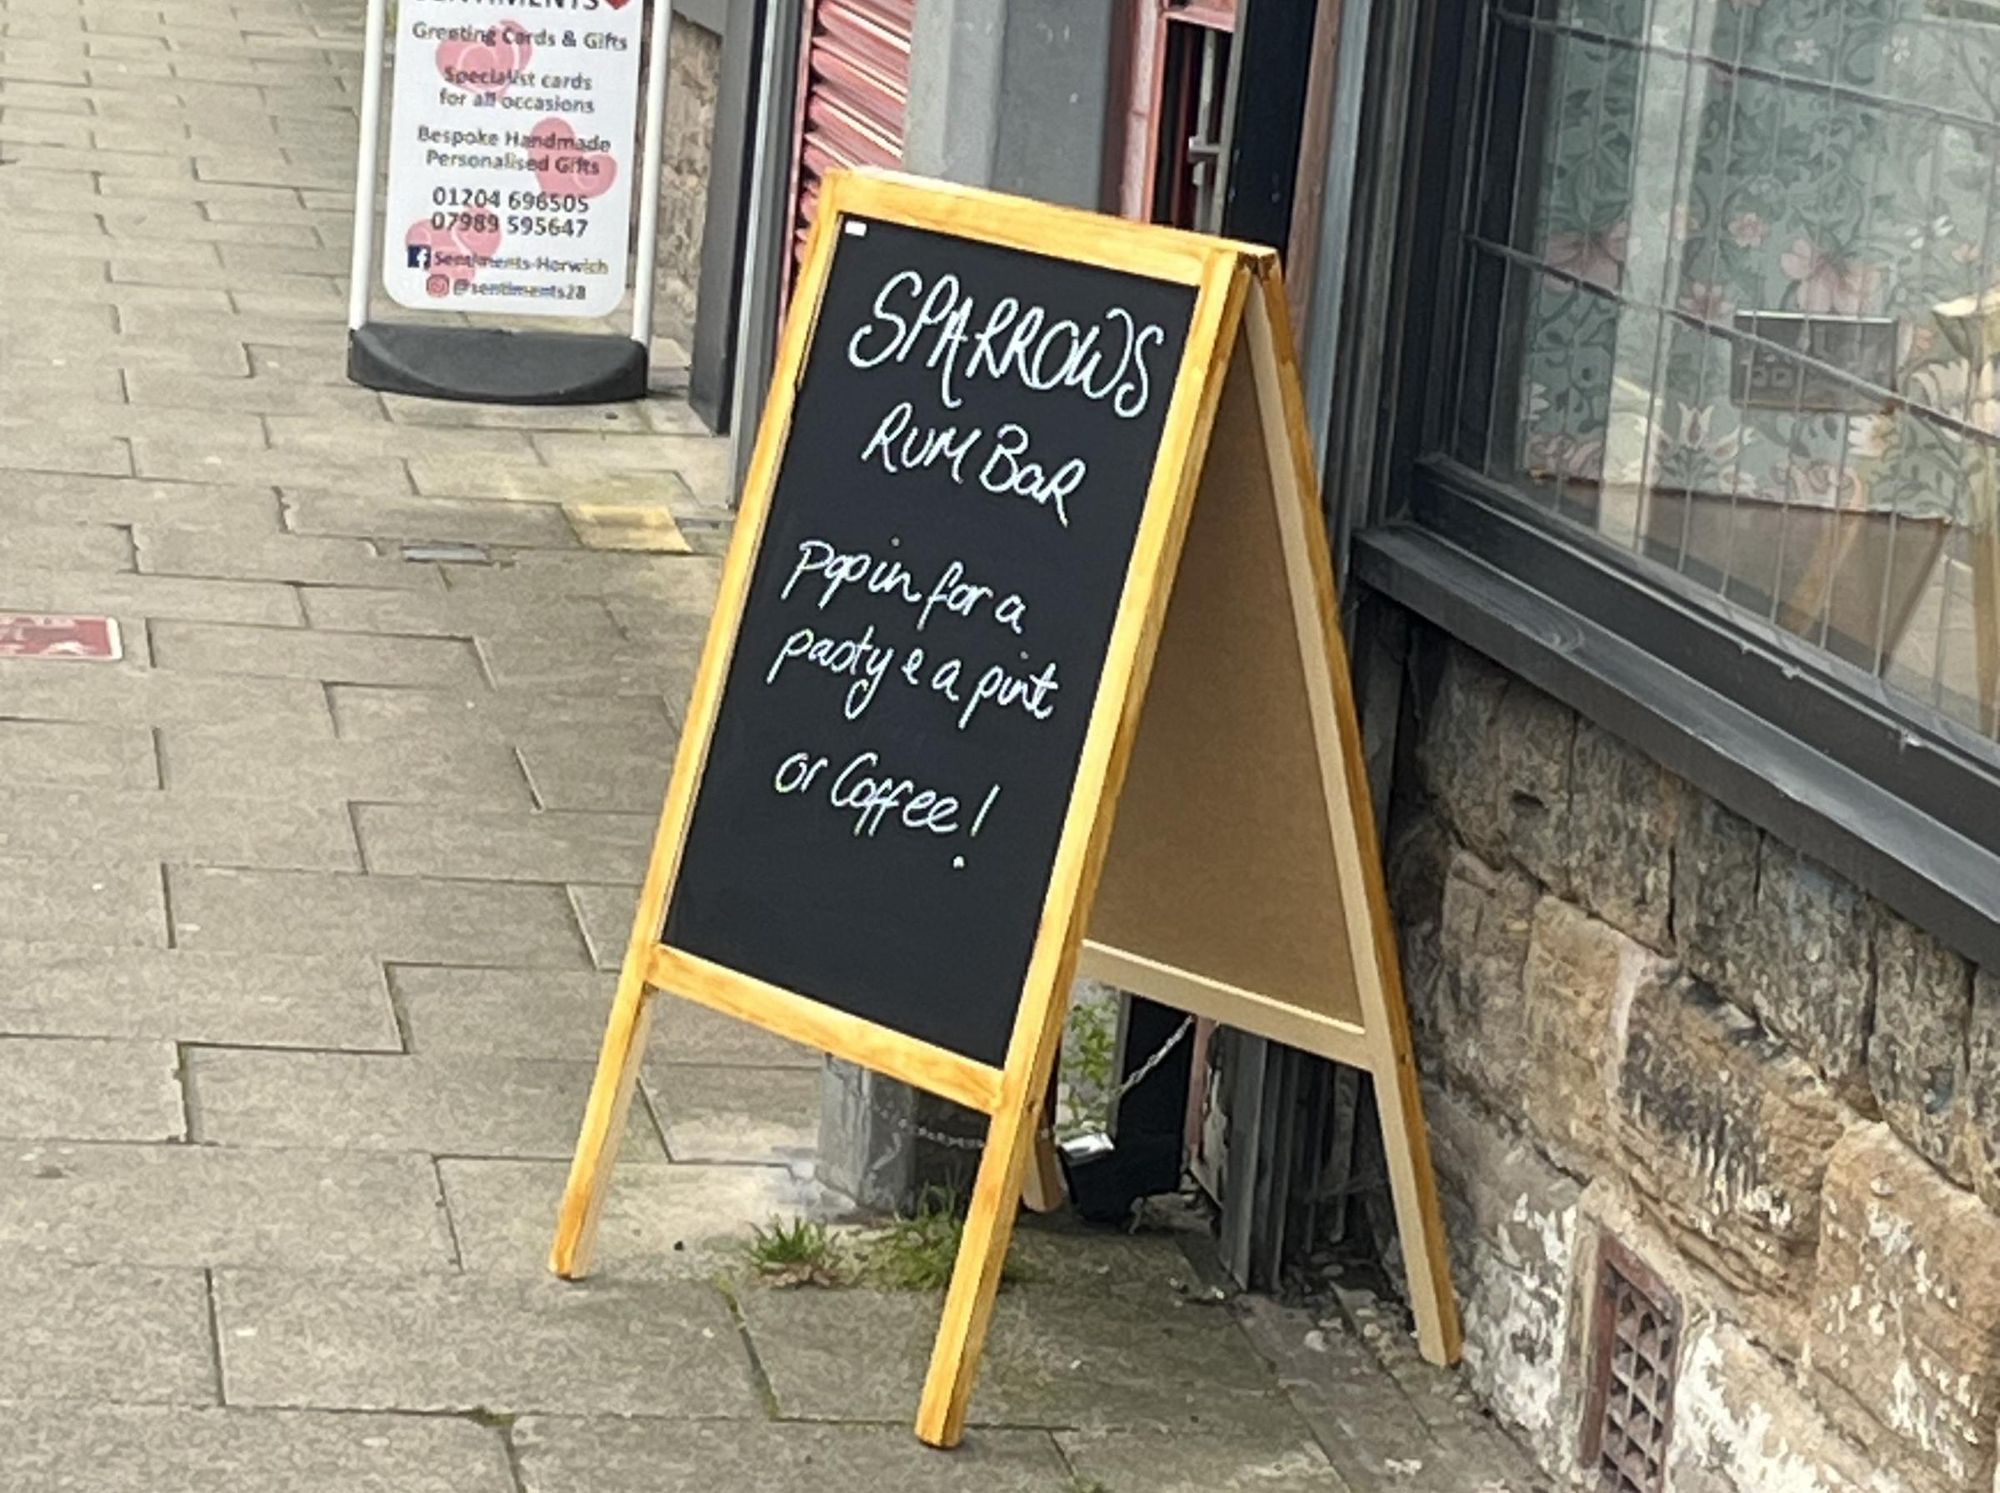 SENTIMENTS
Greeting Cards & Gifts
Specialist cards
for all occasions
Bespoke Handmade
Personalised Gifts
01204 696505
07989 595647
Sentiments Horwich
@sentiments28
SPARROWS
RUM BaR
Pop in for a
pasty & a pint
or Coffee!